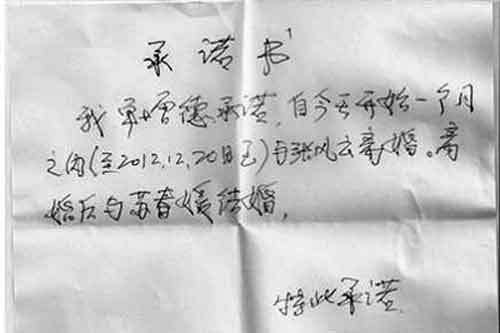 承诺书
我单增德承诺，自今天开始一个月
之内（至2012.12.20日止）与张风云离婚。离
婚后与苏春媛结婚，
特此承诺